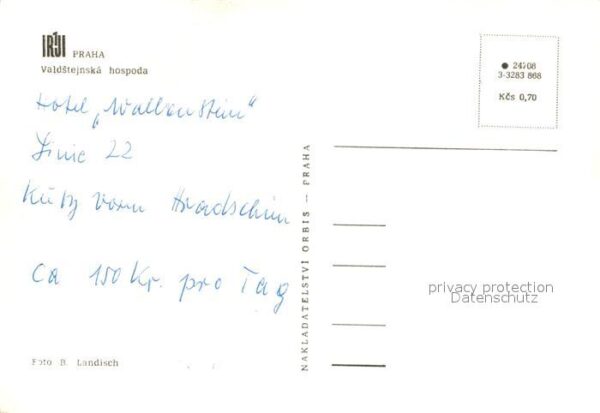 PRAHA
Valdštejnská hospoda
Hotel „Wallenstein“
Linie 22
Kurz vorm Hradschin
Ca 150 Kr. pro Tag
Foto B. Landisch
NAKLADATELSTVÍ ORBIS — PRAHA
● 24208
3-3283 868
Kčs 0,70
privacy protection
Datenschutz